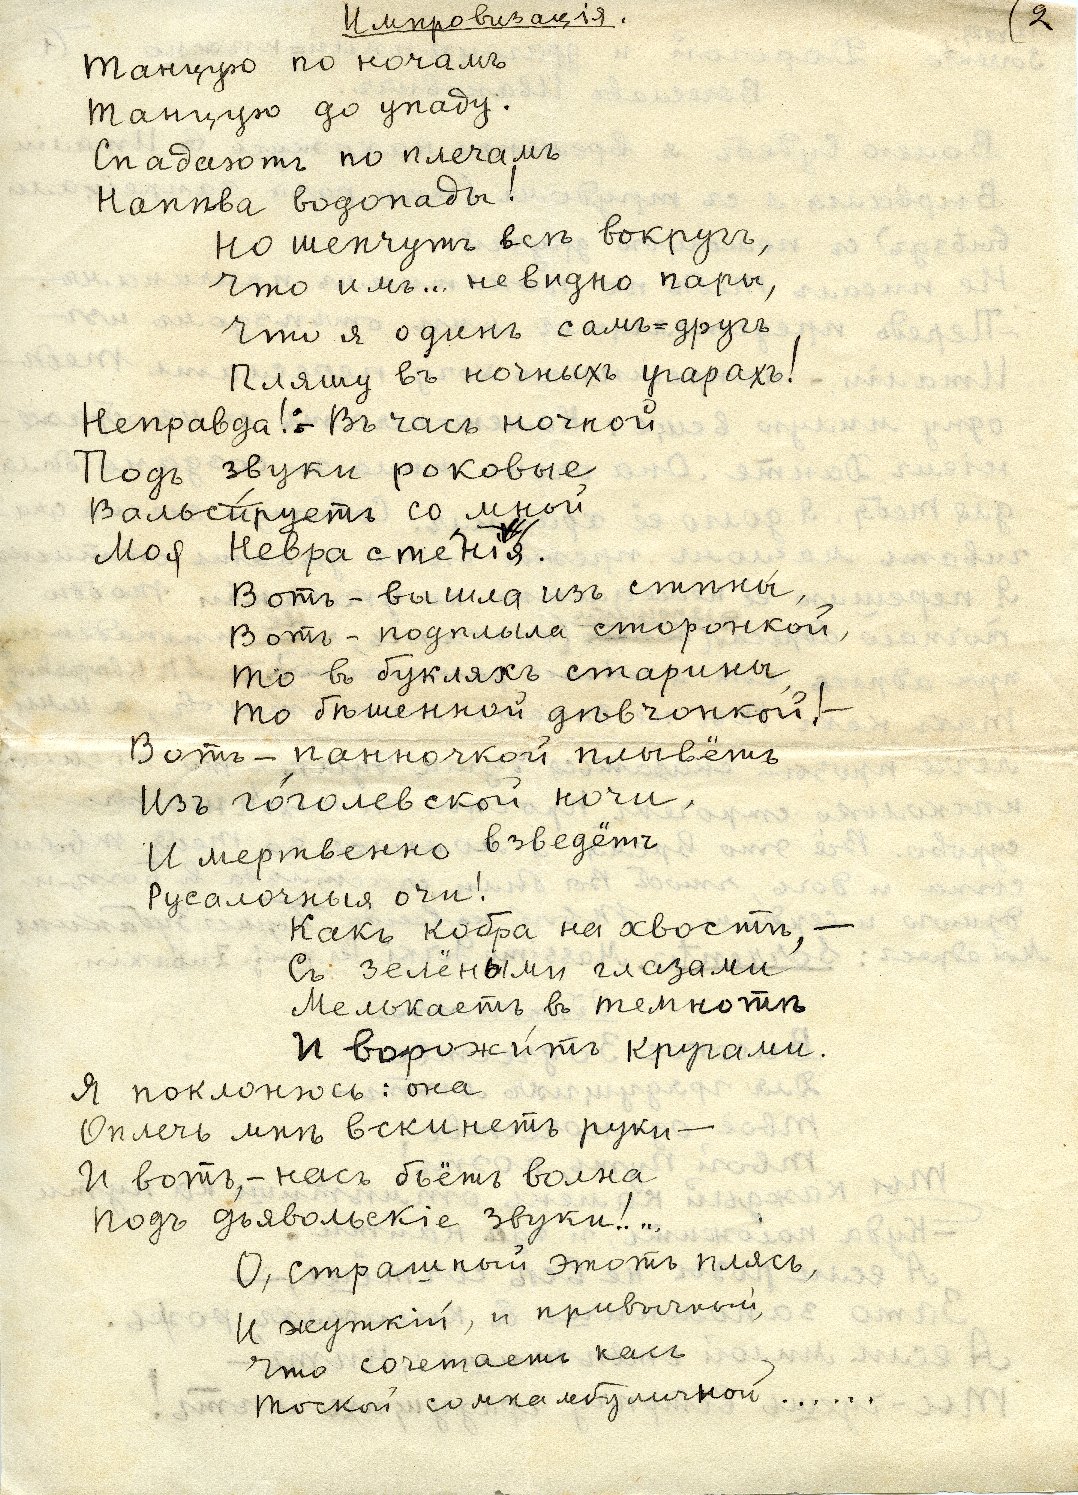 Импровизація.
(2
Танцую по ночамъ
Танцую до упаду.
Спадаютъ по плечамъ
Напѣва водопады!
Но шепчутъ всѣ вокругъ,
Что имъ... не видно пары,
Что я одинъ самъ=другъ
Пляшу въ ночныхъ угарахъ!
Неправда!:– Въ часъ ночной
Подъ звуки роковые
Вальси́руетъ со мной
Моя Неврастенія.
Вотъ – вышла изъ стѣны,
Вотъ – подплыла сторонкой,
То въ букляхъ старины,
То бѣшенной дѣвчонкой!–
Вотъ – панночкой плывётъ
Изъ го́голевской ночи,
И мертвенно взведётъ
Русалочныя очи!
Какъ кобра на хвостѣ, –
Съ зелёными глазами
Мелькаетъ въ темнотѣ
И ворожи́тъ кругами.
Я поклонюсь: она
Оплечь мнѣ вскинетъ руки –
И вотъ, – насъ бьётъ волна
Подъ дьявольскіе звуки!...
О, страшный этотъ плясъ,
И жуткій, и привычный,
Что сочетаетъ насъ
Тоской сомнамбуличной......